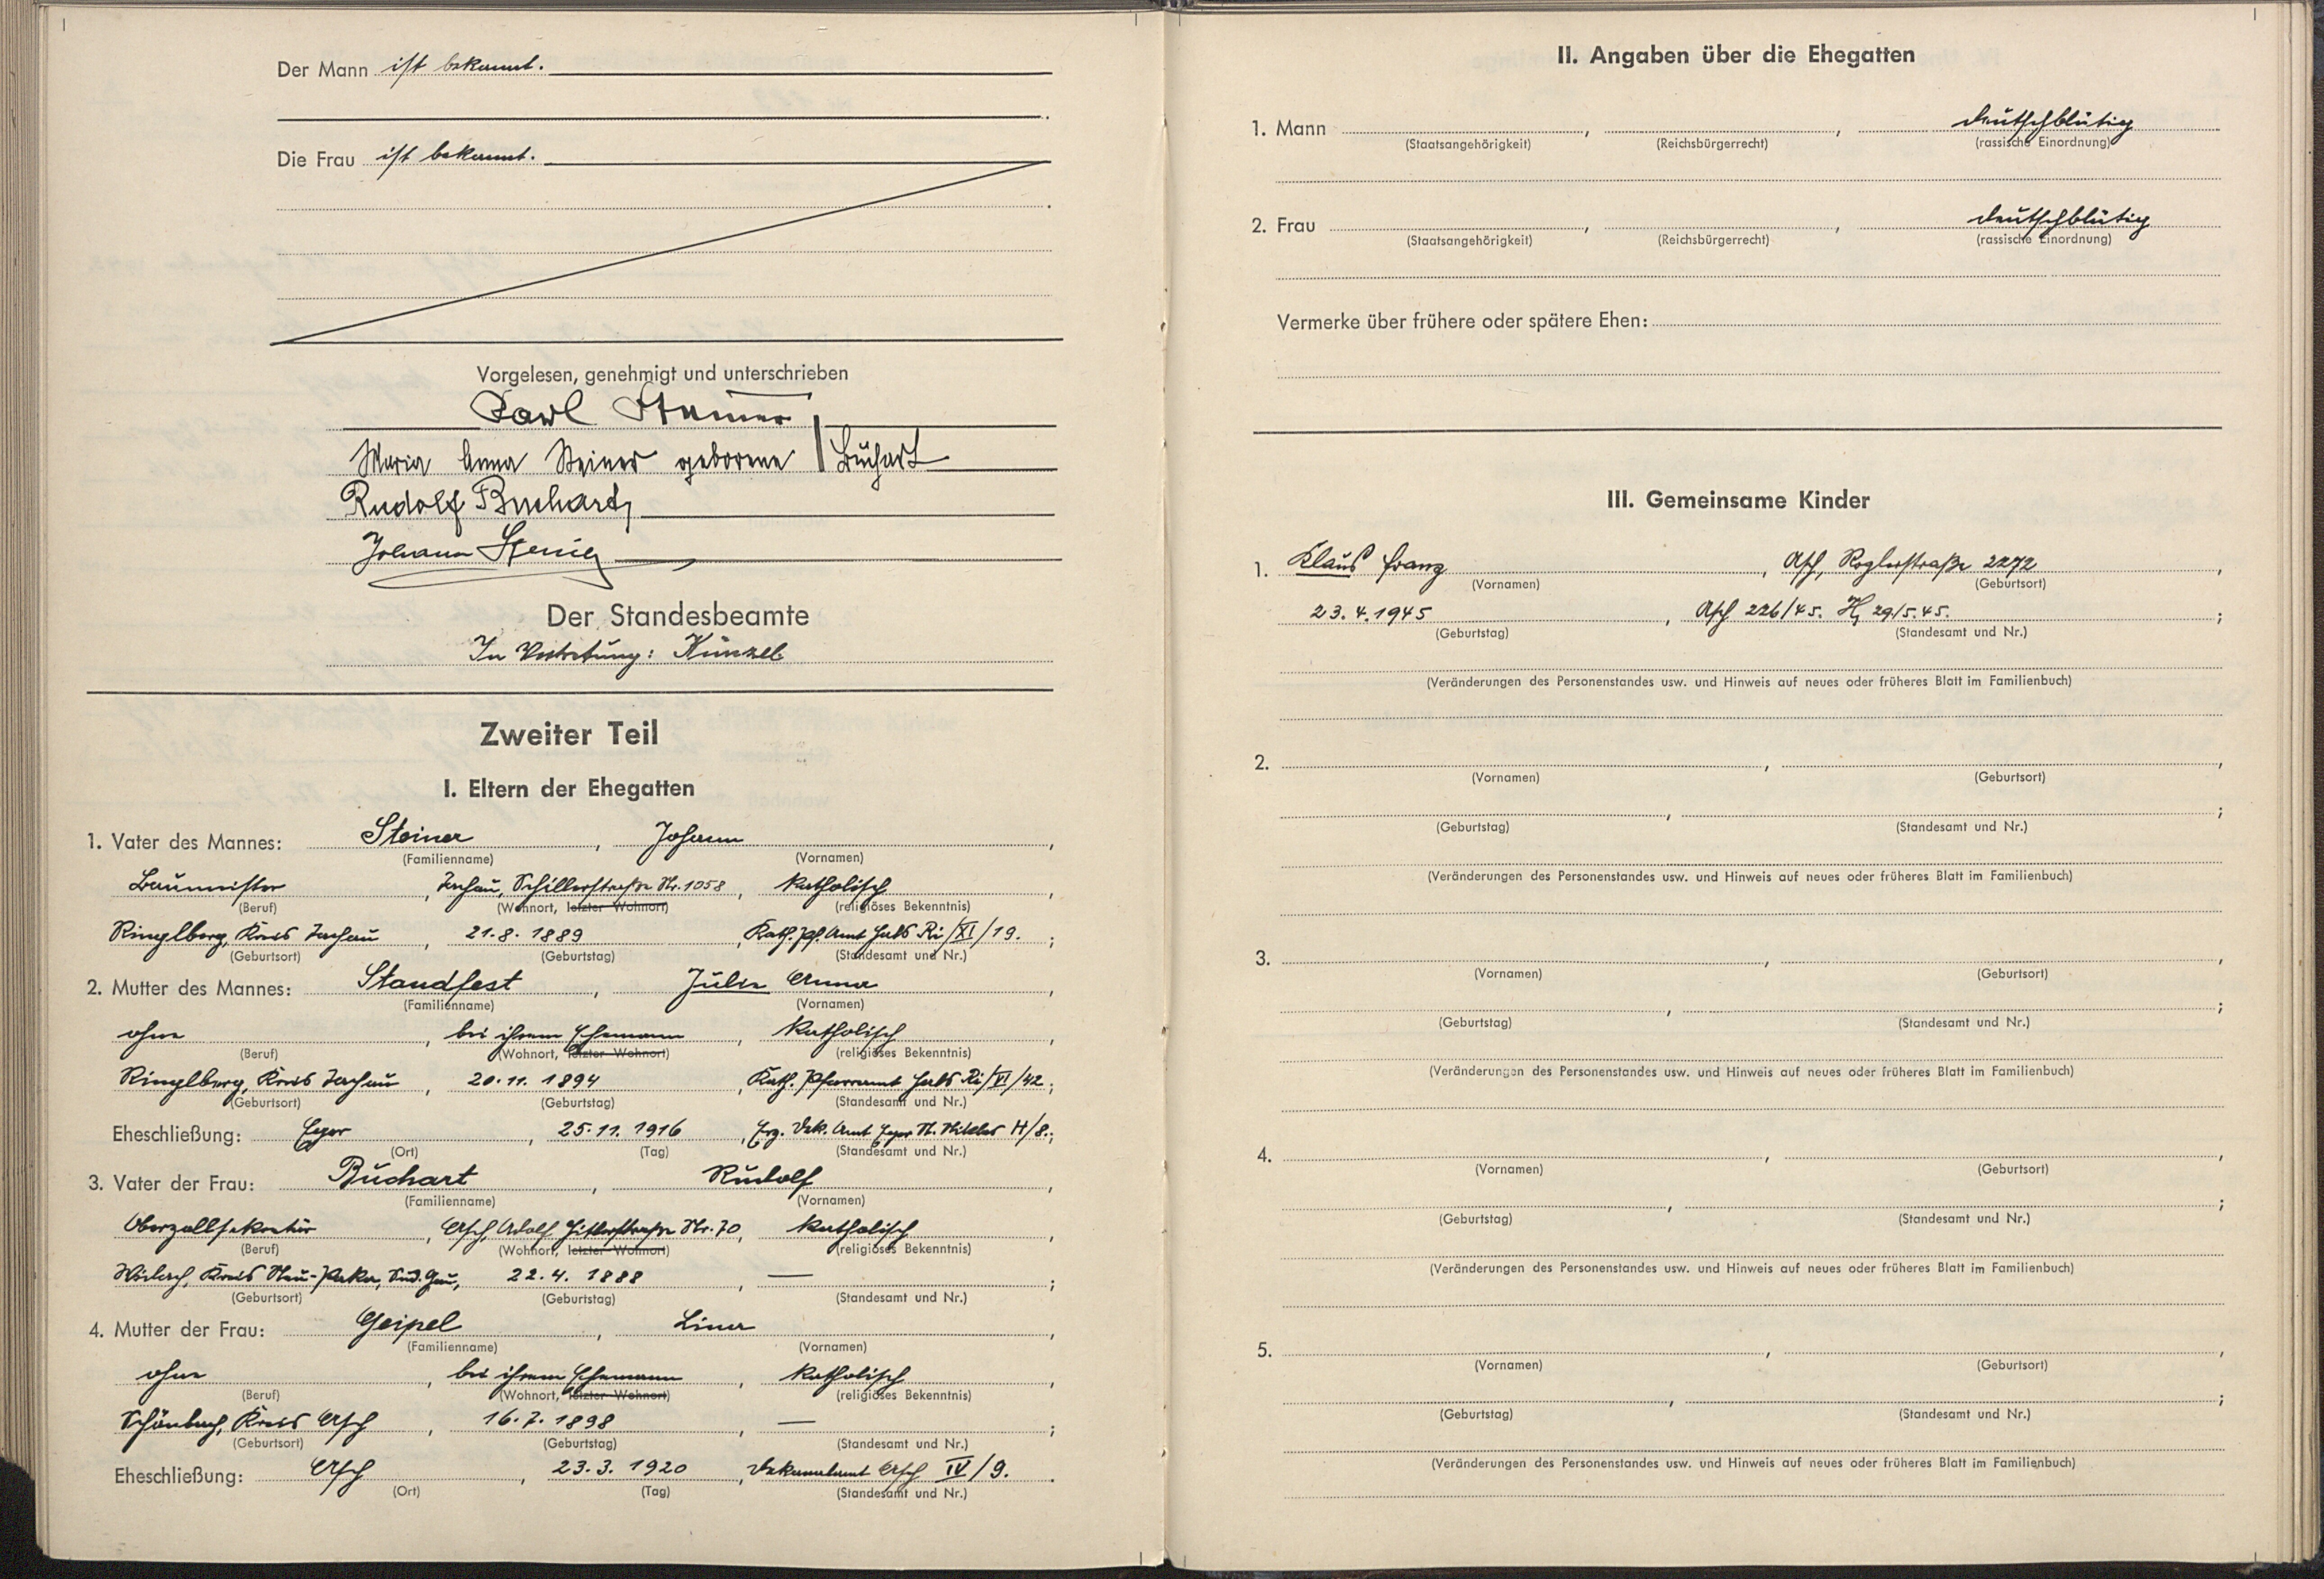 Der Mann ist bekannt.
Die Frau ist bekannt.
Vorgelesen, genehmigt und unterschrieben
Karl Steiner
Maria Anna Steiner geborene Buchart
Rudolf Buchart
Johann
Der Standesbeamte
In Vertretung: Künzel
Zweiter Teil
I. Eltern der Ehegatten
1. Vater des Mannes: Steiner, Johann,
(Familienname) (Vornamen)
Baumeister, Tachau, Schillerstraße Nr. 1058, katholisch,
(Beruf) (Wohnort, letzter Wohnort) (religiöses Bekenntnis)
Ringlberg, Kreis Tachau, 21.8.1889, Kath. Pf. Amt Hals Ri/XI/19.;
(Geburtsort) (Geburtstag) (Standesamt und Nr.)
2. Mutter des Mannes: Standfest, Julie Anna,
(Familienname) (Vornamen)
ohne, bei ihrem Ehemann, katholisch,
(Beruf) (Wohnort, letzter Wohnort) (religiöses Bekenntnis)
Ringlberg, Kreis Tachau, 20.11.1894, Kath. Pfarramt Hals Ri/VI/42;
(Geburtsort) (Geburtstag) (Standesamt und Nr.)
Eheschließung: Eger, 25.11.1916, Erz. Dek. Amt Eger St. Niklas H/8.;
(Ort) (Tag) (Standesamt und Nr.)
3. Vater der Frau: Buchart, Rudolf,
(Familienname) (Vornamen)
Oberzollsekretär, Asch, Adolf Hitlerstraße Nr. 70, katholisch,
(Beruf) (Wohnort, letzter Wohnort) (religiöses Bekenntnis)
Kreis Neu-Paka, Sud. Gau, 22.4.1888, —;
(Geburtsort) (Geburtstag) (Standesamt und Nr.)
4. Mutter der Frau: Geipel, Lina,
(Familienname) (Vornamen)
ohne, bei ihrem Ehemann, katholisch,
(Beruf) (Wohnort, letzter Wohnort) (religiöses Bekenntnis)
Schönbach, Kreis Asch, 16.7.1898, —;
(Geburtsort) (Geburtstag) (Standesamt und Nr.)
Eheschließung: Asch, 23.3.1920, Dekanalamt Asch IV/9.
(Ort) (Tag) (Standesamt und Nr.)
II. Angaben über die Ehegatten
1. Mann , , deutschblütig
(Staatsangehörigkeit) (Reichsbürgerrecht) (rassische Einordnung)
2. Frau , , deutschblütig
(Staatsangehörigkeit) (Reichsbürgerrecht) (rassische Einordnung)
Vermerke über frühere oder spätere Ehen:
III. Gemeinsame Kinder
1. Klaus Franz, Asch, Roglerstraße 2272,
(Vornamen) (Geburtsort)
23.4.1945, Asch 226/45. 29/5.45.;
(Geburtstag) (Standesamt und Nr.)
(Veränderungen des Personenstandes usw. und Hinweis auf neues oder früheres Blatt im Familienbuch)
2. , ,
(Vornamen) (Geburtsort)
, ;
(Geburtstag) (Standesamt und Nr.)
(Veränderungen des Personenstandes usw. und Hinweis auf neues oder früheres Blatt im Familienbuch)
3. , ,
(Vornamen) (Geburtsort)
, ;
(Geburtstag) (Standesamt und Nr.)
(Veränderungen des Personenstandes usw. und Hinweis auf neues oder früheres Blatt im Familienbuch)
4. , ,
(Vornamen) (Geburtsort)
, ;
(Geburtstag) (Standesamt und Nr.)
(Veränderungen des Personenstandes usw. und Hinweis auf neues oder früheres Blatt im Familienbuch)
5. , ,
(Vornamen) (Geburtsort)
, ;
(Geburtstag) (Standesamt und Nr.)
(Veränderungen des Personenstandes usw. und Hinweis auf neues oder früheres Blatt im Familienbuch)